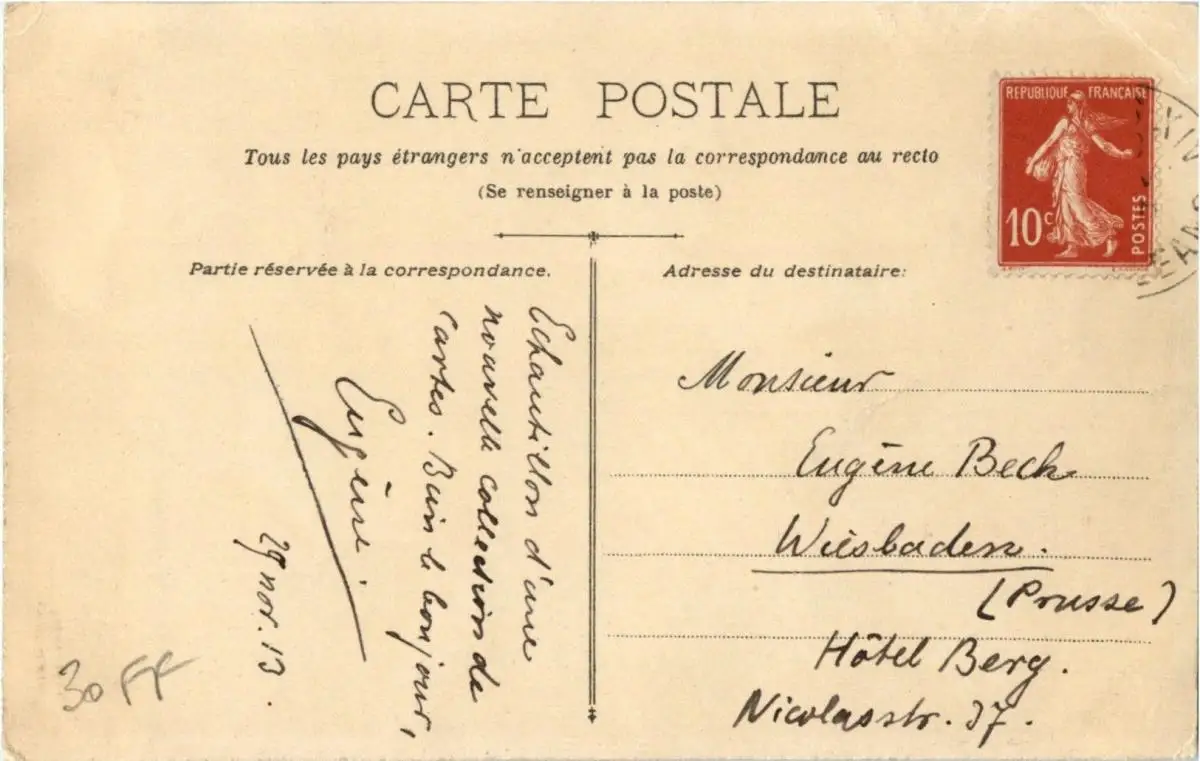 CARTE POSTALE
Tous les pays étrangers n'acceptent pas la correspondance au recto
(Se renseigner à la poste)
REPUBLIQUE FRANÇAISE
10c
POSTES
Partie réservée à la correspondance.
Echantillon d'une
nouvelle collection de
cartes. Bien le bonjour,
Eugène.
29 nov. 13.
30 FF
Adresse du destinataire:
Monsieur
Eugène Beck
Wiesbaden.
(Prusse)
Hôtel Berg.
Nicolasstr. 37.